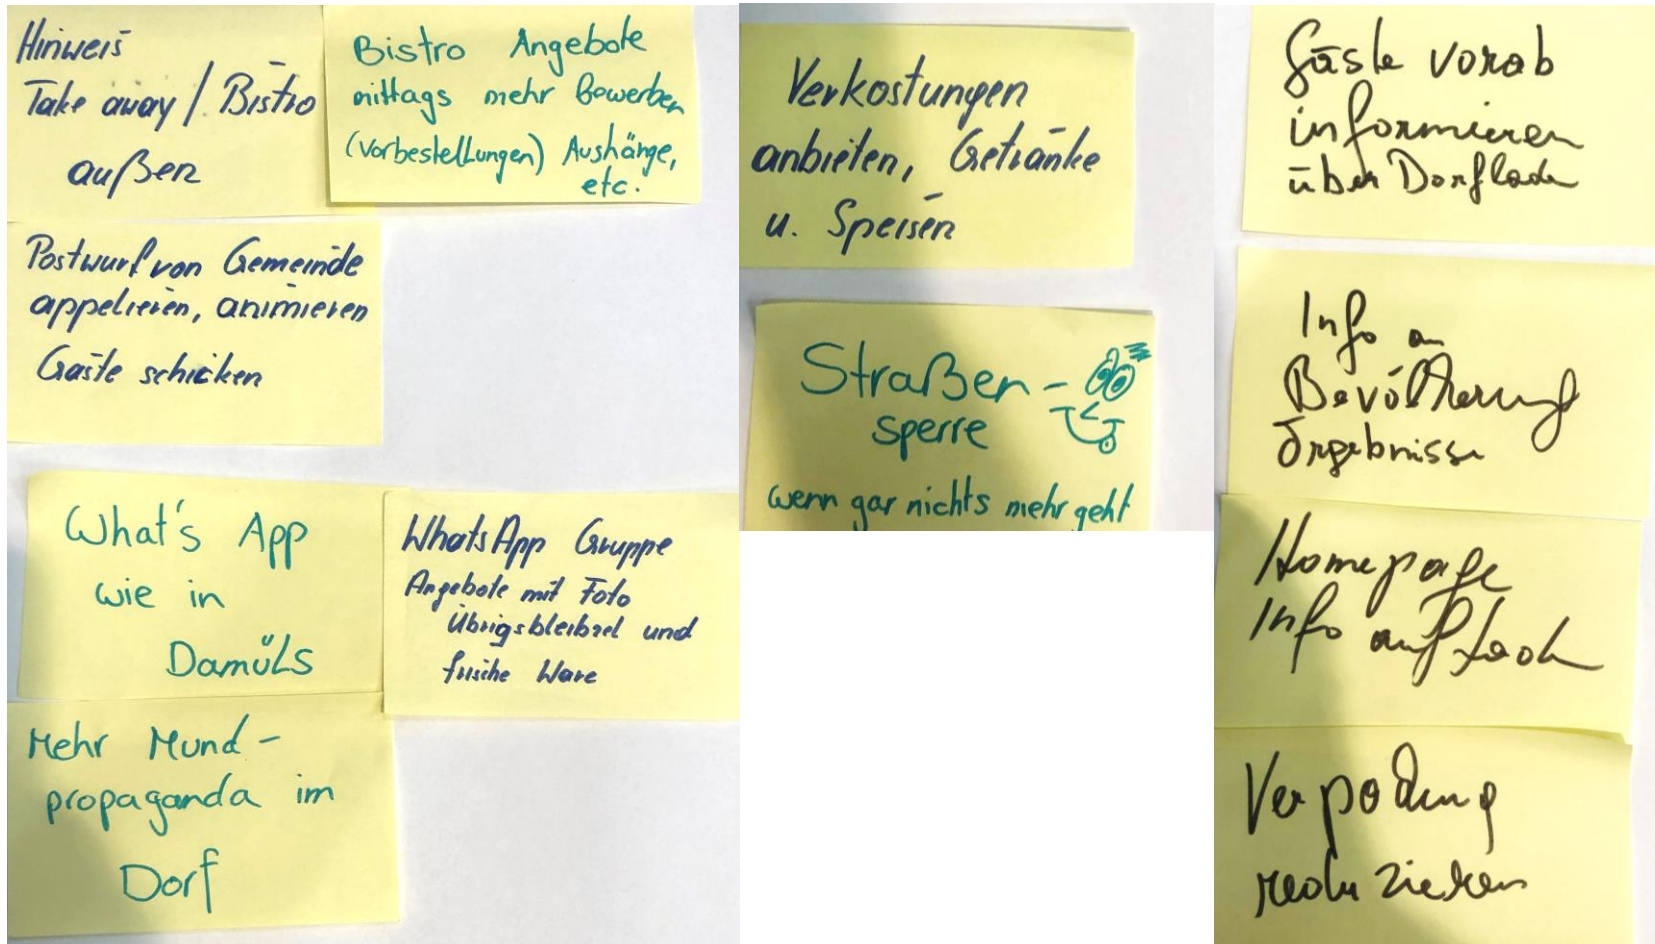 Hinweis
Take away / Bistro
außen
Bistro Angebote
mittags mehr Bewerben
(Vorbestellungen) Aushänge,
etc.
Postwurf von Gemeinde
appelieren, animieren
Gäste schicken
What's App
wie in
Damüls
WhatsApp Gruppe
Angebote mit Foto
Übrigsbleibsel und
frische Ware
Mehr Mund-
propaganda im
Dorf
Verkostungen
anbieten, Getränke
u. Speisen
Straßen-
sperre
wenn gar nichts mehr geht
Gäste vorab
informieren
über Dorfladen
Info an
Bevölkerung
Ergebnisse
Homepage
Info auf
Verpackung
reduzieren